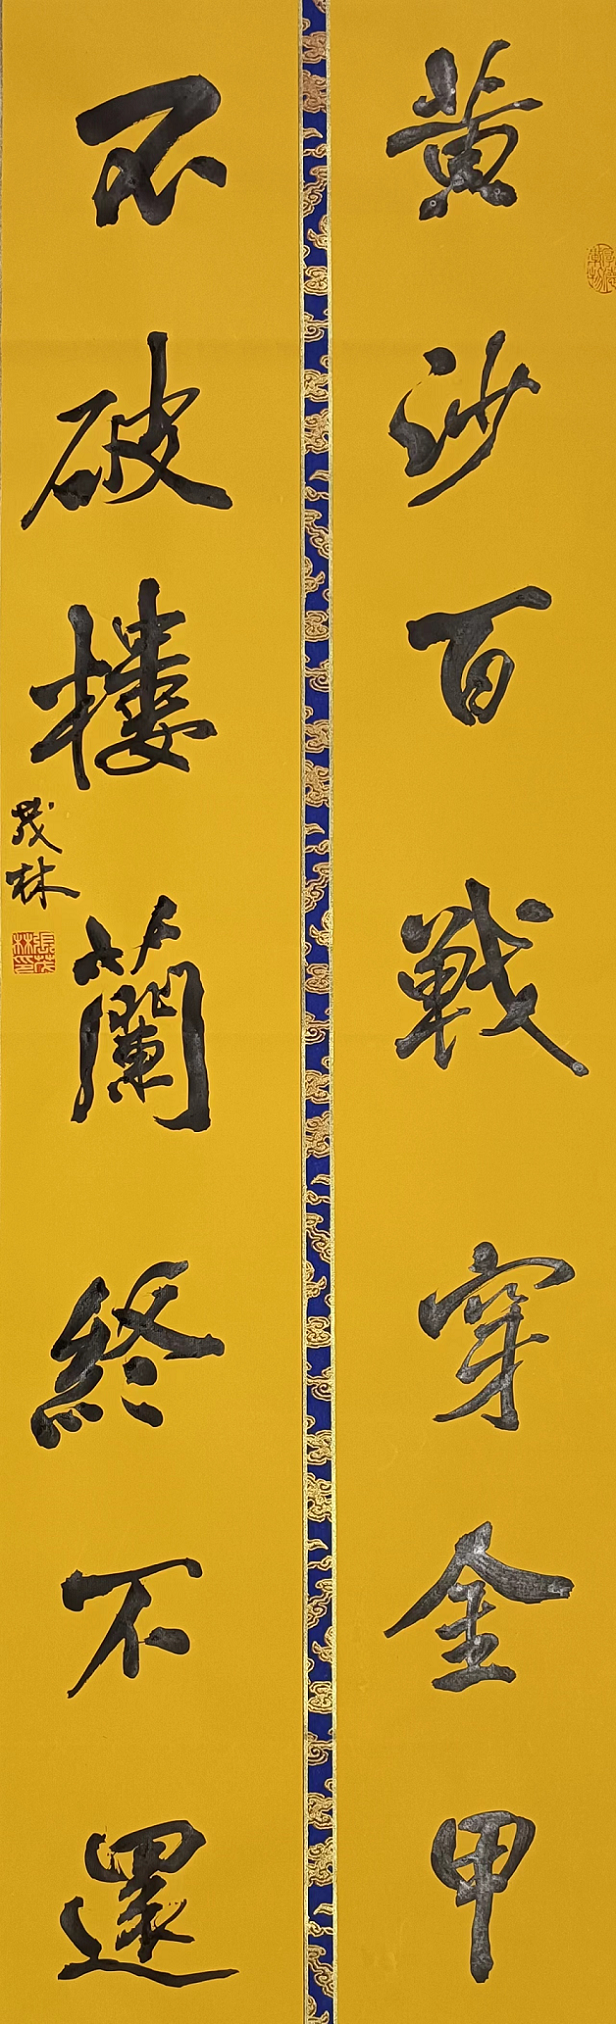 黄沙百戰穿金甲
不破樓蘭終不還
茂林
張茂林印